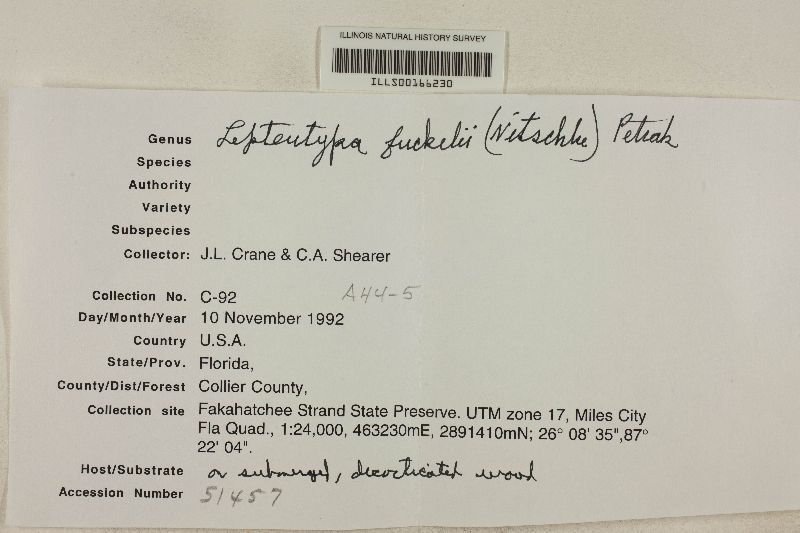 ILLINOIS NATURAL HISTORY SURVEY
ILLS00166230
Genus Lepteutypa fuckelii (Nitschke) Petrak
Species
Authority
Variety
Subspecies
Collector: J.L. Crane & C.A. Shearer
Collection No. C-92 A44-5
Day/Month/Year 10 November 1992
Country U.S.A.
State/Prov. Florida,
County/Dist/Forest Collier County,
Collection site Fakahatchee Strand State Preserve. UTM zone 17, Miles City
Fla Quad., 1:24,000, 463230mE, 2891410mN; 26° 08' 35",87°
22' 04".
Host/Substrate on submerged, decorticated wood
Accession Number 51457